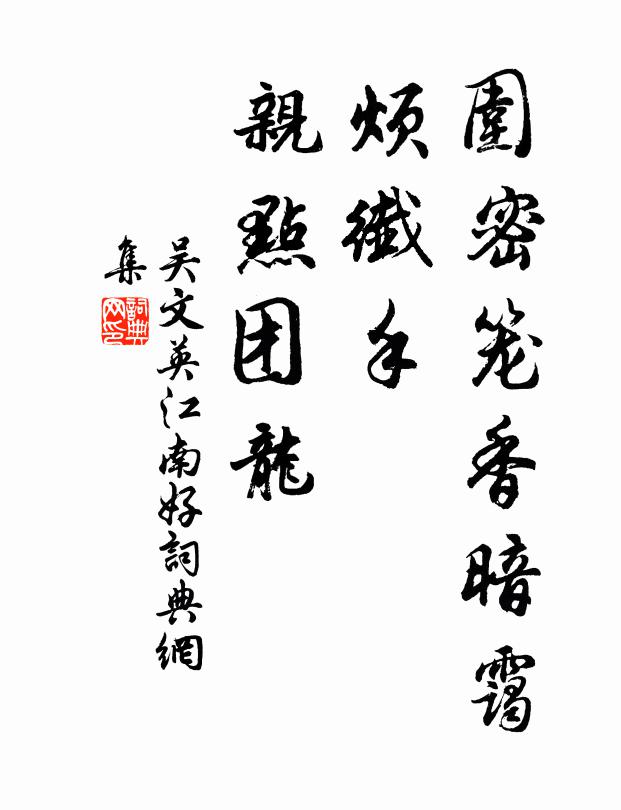 圍密笼香暗靄
烦纖手
親點团龍
吴文英江南好詞典網
集
詞典网印